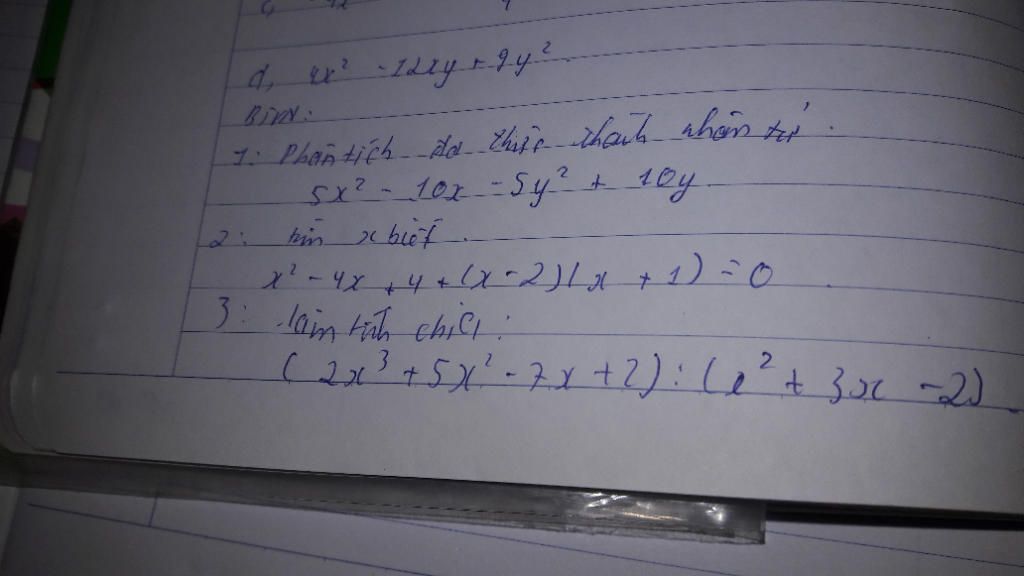 d, 4x² - 12xy + 9y²
Bài IV:
1: Phân tích đa thức thành nhân tử.
5x² - 10x - 5y² + 10y
2: tìm x biết
x² - 4x + 4 + (x - 2)(x + 1) = 0
3: làm tính chia:
(2x³ + 5x² - 7x + 2) : (x² + 3x - 2)